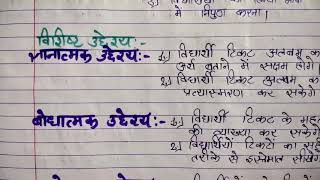 में निपुण करना।
विशिष्ट उद्देश्य:-
ज्ञानात्मक उद्देश्य:- 1.) विद्यार्थी टिकट अलबम का
अर्थ बताने में सक्षम होंगे।
2.) विद्यार्थी टिकट अलबम का
प्रत्यास्मरण कर सकेंगे
बोधात्मक उद्देश्य:- 1.) विद्यार्थी टिकट के
की व्याख्या कर सकेंगे
2.) विद्यार्थियों टिकटों का सही
तरीके से इस्तेमाल